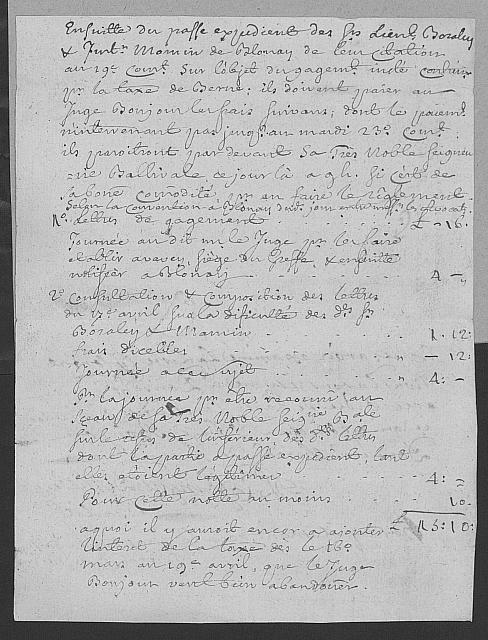 Ensuitte du passé expedient des Srs Lieut. Boraley
& Justr. Mamin de Blonay de leur citation
au 19e Court. Sur l'objet du pagemt.
pr. la taxe de Berne; ils doivent paier au
Juge Bonjour les frais suivans; dont le paiemt.
n'intervenant pas jusqu'au mardi 23e Court.
ils paroitront par devant Sa Très Noble Seigneu
=rie Ballivale ce jour là a 9 h. si c'est de
sa bone comodité pr. en faire le reglement.
Selon la convention à Blonay
1o. Lettres de gagement ₤ - 16.
Journée au dit un le Juge pr. les faire
etablir a vevey, siège du Greffe & ensuitte
notifier a Blonay 4 -
2o. Consultation & Composition des lettres
du 17e avril, sur la dificulté des ds. Srs.
Boraley & Mamin 1. 12:
frais d'icelles " - 12:
Journée a ce sujet " 4: -
Pr. la journée pr. être recouru au
Sceau de Sa Très Noble Seigrie Bale
sur le refus de l'inférieur des dtes. lettres
dont la partie a passé expedient, tant
elles etoient légitimes 4: =
Pour cette notte au moins 10
₤ 15: 10:
a quoi il y auroit encor a ajouter
l'interet de la taxe dès le 16e
mars au 19e avril, que le Juge
Bonjour veut bien abandoner.